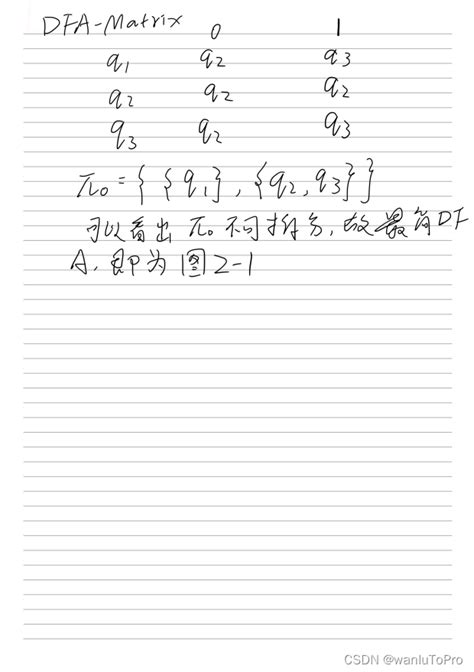 DFA-Matrix 0 1
q1 q2 q3
q2 q2 q2
q3 q2 q3
π0 = { {q1} , {q2, q3} }
可以看出 π0 不可拆分, 故最简DF
A, 即为图2-1
CSDN @wanluToPro